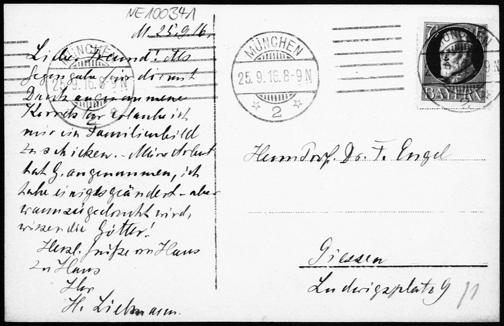 NE100341
M 25.9.16.
Lieber Freund! Als
Gegengabe für die mit
Dank angenommene
Korrektur erlaube ich
mir ein Familienbild
zu schicken. – Müns Arbeit
hat G. angenommen, ich
habe einiges geändert – aber
wann sie gedruckt wird,
wissen die Götter!
Herzl. Grüße von Haus
zu Haus
Ihr
H. Liebmann.
MÜNCHEN
25.9.16.8-9N
2
BAYERN
Herrn Prof. Dr. F. Engel
Giessen
Ludwigsplatz 9